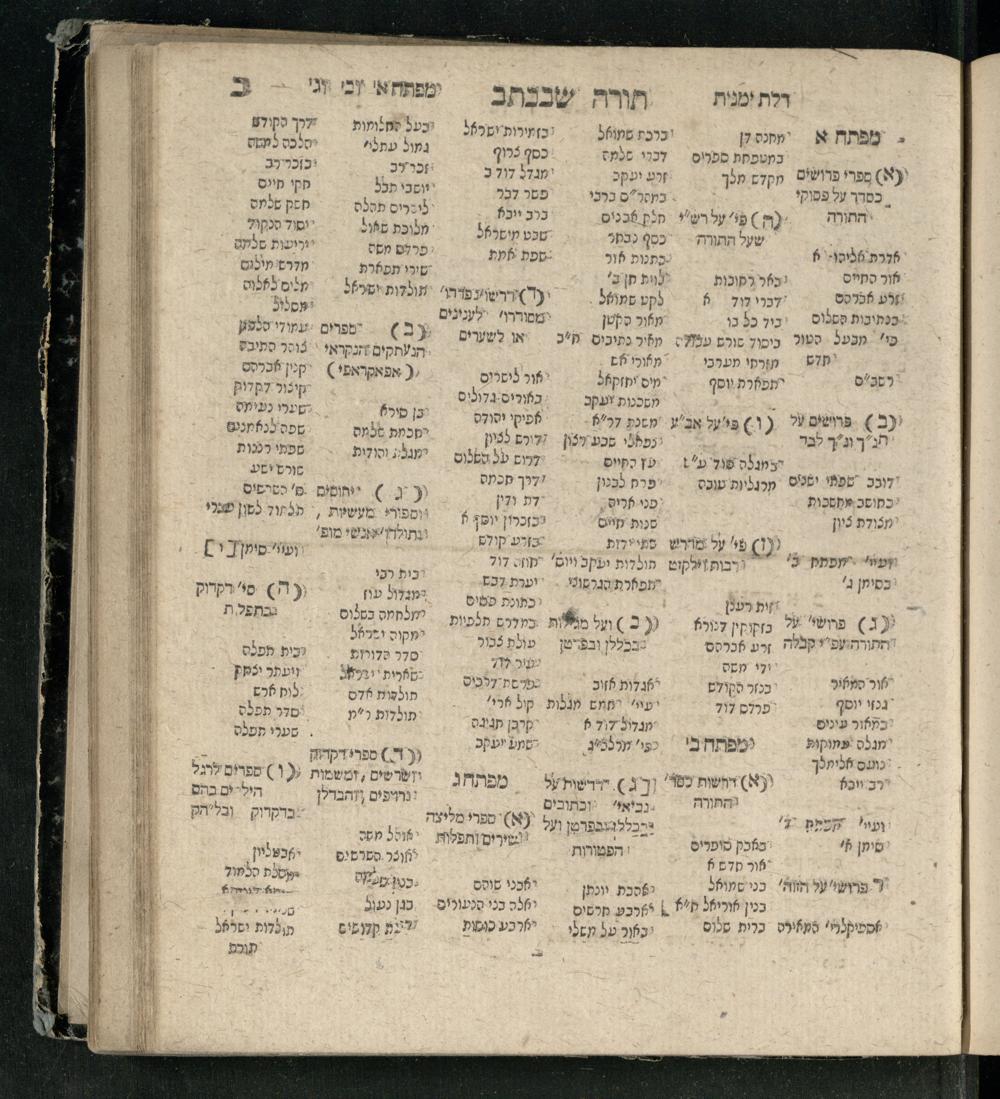 דלת ימנית
תורה שבכתב
מפתח א' וב' וג'
ב
מפתח א
(א) ספרי פרושים
כסדר על פסוקי
התורה
אדרת אליהו א
אור החיים
זרע אברהם
בנתיבות השלום
פי' מבעל הטור
חדש
רשב"ם
(ב) פרושים על
תנ"ך ונ"ך לבד
דובב שפתי ישנים
כחושב מחשבות
מצודת ציון
ועיי' מפתח ב'
בסימן ג'
(ג) פרושי' על
התורה עפ"י קבלה
אור המאיר
גנזי יוסף
במאור עינים
מגלה עמוקות
נועם אלימלך
רב ייבא
ועיי' מפתח ד'
סימן א'
ד פרושי' על הזוה'
אספקלרי' המאירה
מחנה דן
במטפחת ספרים
מקדש מלך
(ה) פי' על רש"י
שעל התורה
באר רחובות
דברי דוד א
ביד כל בו
ביסוד שורש עבודה
מזרחי מערבי
תפארת יוסף
(ו) פי' על אב"ע
במגלה סוד ע"ש
מרגליות טובה
(ז) פי' על מדרש
רבות וילקוט
זית רענן
בזקוקין דנורא
זרע אברהם
ידי משה
בנזר הקודש
פרדס דוד
מפתח ב'
(א) דרשות כסד'
התורה
באבק סופרים
אור חדש א
בני שמואל
בנין אוריאל ח"א
ברית שלום
ברכת שמואל
דברי שלמה
זרע יעקב
במהר"ם ברבי
חלק אבנים
כסף נבחר
כתנות אור
לוית חן ב'
לקט שמואל
מאור הקטן
מאיר נתיבים ח"ב
מאורי אש
מים יחזקאל
משכנות יעקב
משנת דר"א
נפתלי שבע רצון
עץ החיים
פרח לבנון
פני אריה
שנות חיים
שתי ידות
תולדות יעקב ויוס'
תפארת הגרשוני
(ב) ועל מגילות
בכללן ובפרטן
אגדות אזוב
עיי' חמש מגלות
מגדול דוד א
כפי' מרלב"ג
(ג) דרשות על
נביאי' וכתובים
בכללן ובפרטן ועל
הפטורות
אהבת יונתן
ארבע חרשים
באור על משלי
בזמירות ישראל
כסף צרוף
מגדל דוד ב
פשר דבר
ברב ייבא
שבט מישראל
שפת אמת
(ד) דרשו' נפרדו'
מסודרו' לענינים
או לשערים
אור לישרים
באורים גדולים
אפיקי יהודה
דורש לציון
דרוש על השלום
דרך חכמה
דת ודין
בזכרון יוסף א
בזרע קודש
חוזה דוד
יערת דבש
כתונת פסים
במדרש תלפיות
עולת צבור
עיר דוד
פרשת דרכים
קול ארי'
קרבן חגיגה
שמע יעקב
מפתח ג
(א) ספרי מליצה
שירים ותפלות
אבני שוהם
אלה בני הנעורים
ארבע כוסות
בעל החלומות
גמול עתלי'
זכר רב
יושבי תבל
לישרים תהלה
מלוכת שאול
פרדס משה
שירי תפארת
תולדות ישראל
(ב) ספרים
הנעתקים הנקראי'
(אפאקראפי)
בן סירא
חכמת שלמה
מגלת יהודית
(ג) יחוסים
וספורי מעשיות,
ותולדו' אנשי מופ'
בית רבי
במגדול עוז
מלחמה בשלום
מקוה ישראל
סדר הדורות
שארית ישראל
תולדות אדם
תולדות ר"מ
(ד) ספרי דקדוק
ושרשים, ומשמות
נרדפים, והבדלן
אוהל משה
אוצר השרשים
בנין שלמה
בגן נעול
דעת קדושים
דרך הקודש
הלכה למשה
בזכר רב
חקי חיים
חשק שלמה
יסוד הנקוד
יריעות שלמה
מדרש מילים
מלים לאלוה
מסלול
עמודי הלשון
צוהר התיבה
קנין אברהם
קיצור דקדוק
שערי נעימה
שפה לנאמנים
שפתי רננות
שורש ישע
ס' השרשים
תלמוד לשון עברי
ועיי' סימן [י]
(ה) ס' דקדוק
בתפלת
בית תפלה
ויעתר יצחק
לוח ארש
סדר תפלה
שערי תפלה
(ו) ספרים לרגל
הילדים בהם
בדקדוק ובל"הק
אבטליון
מסלת הלמוד
תולדות ישראל
תורת